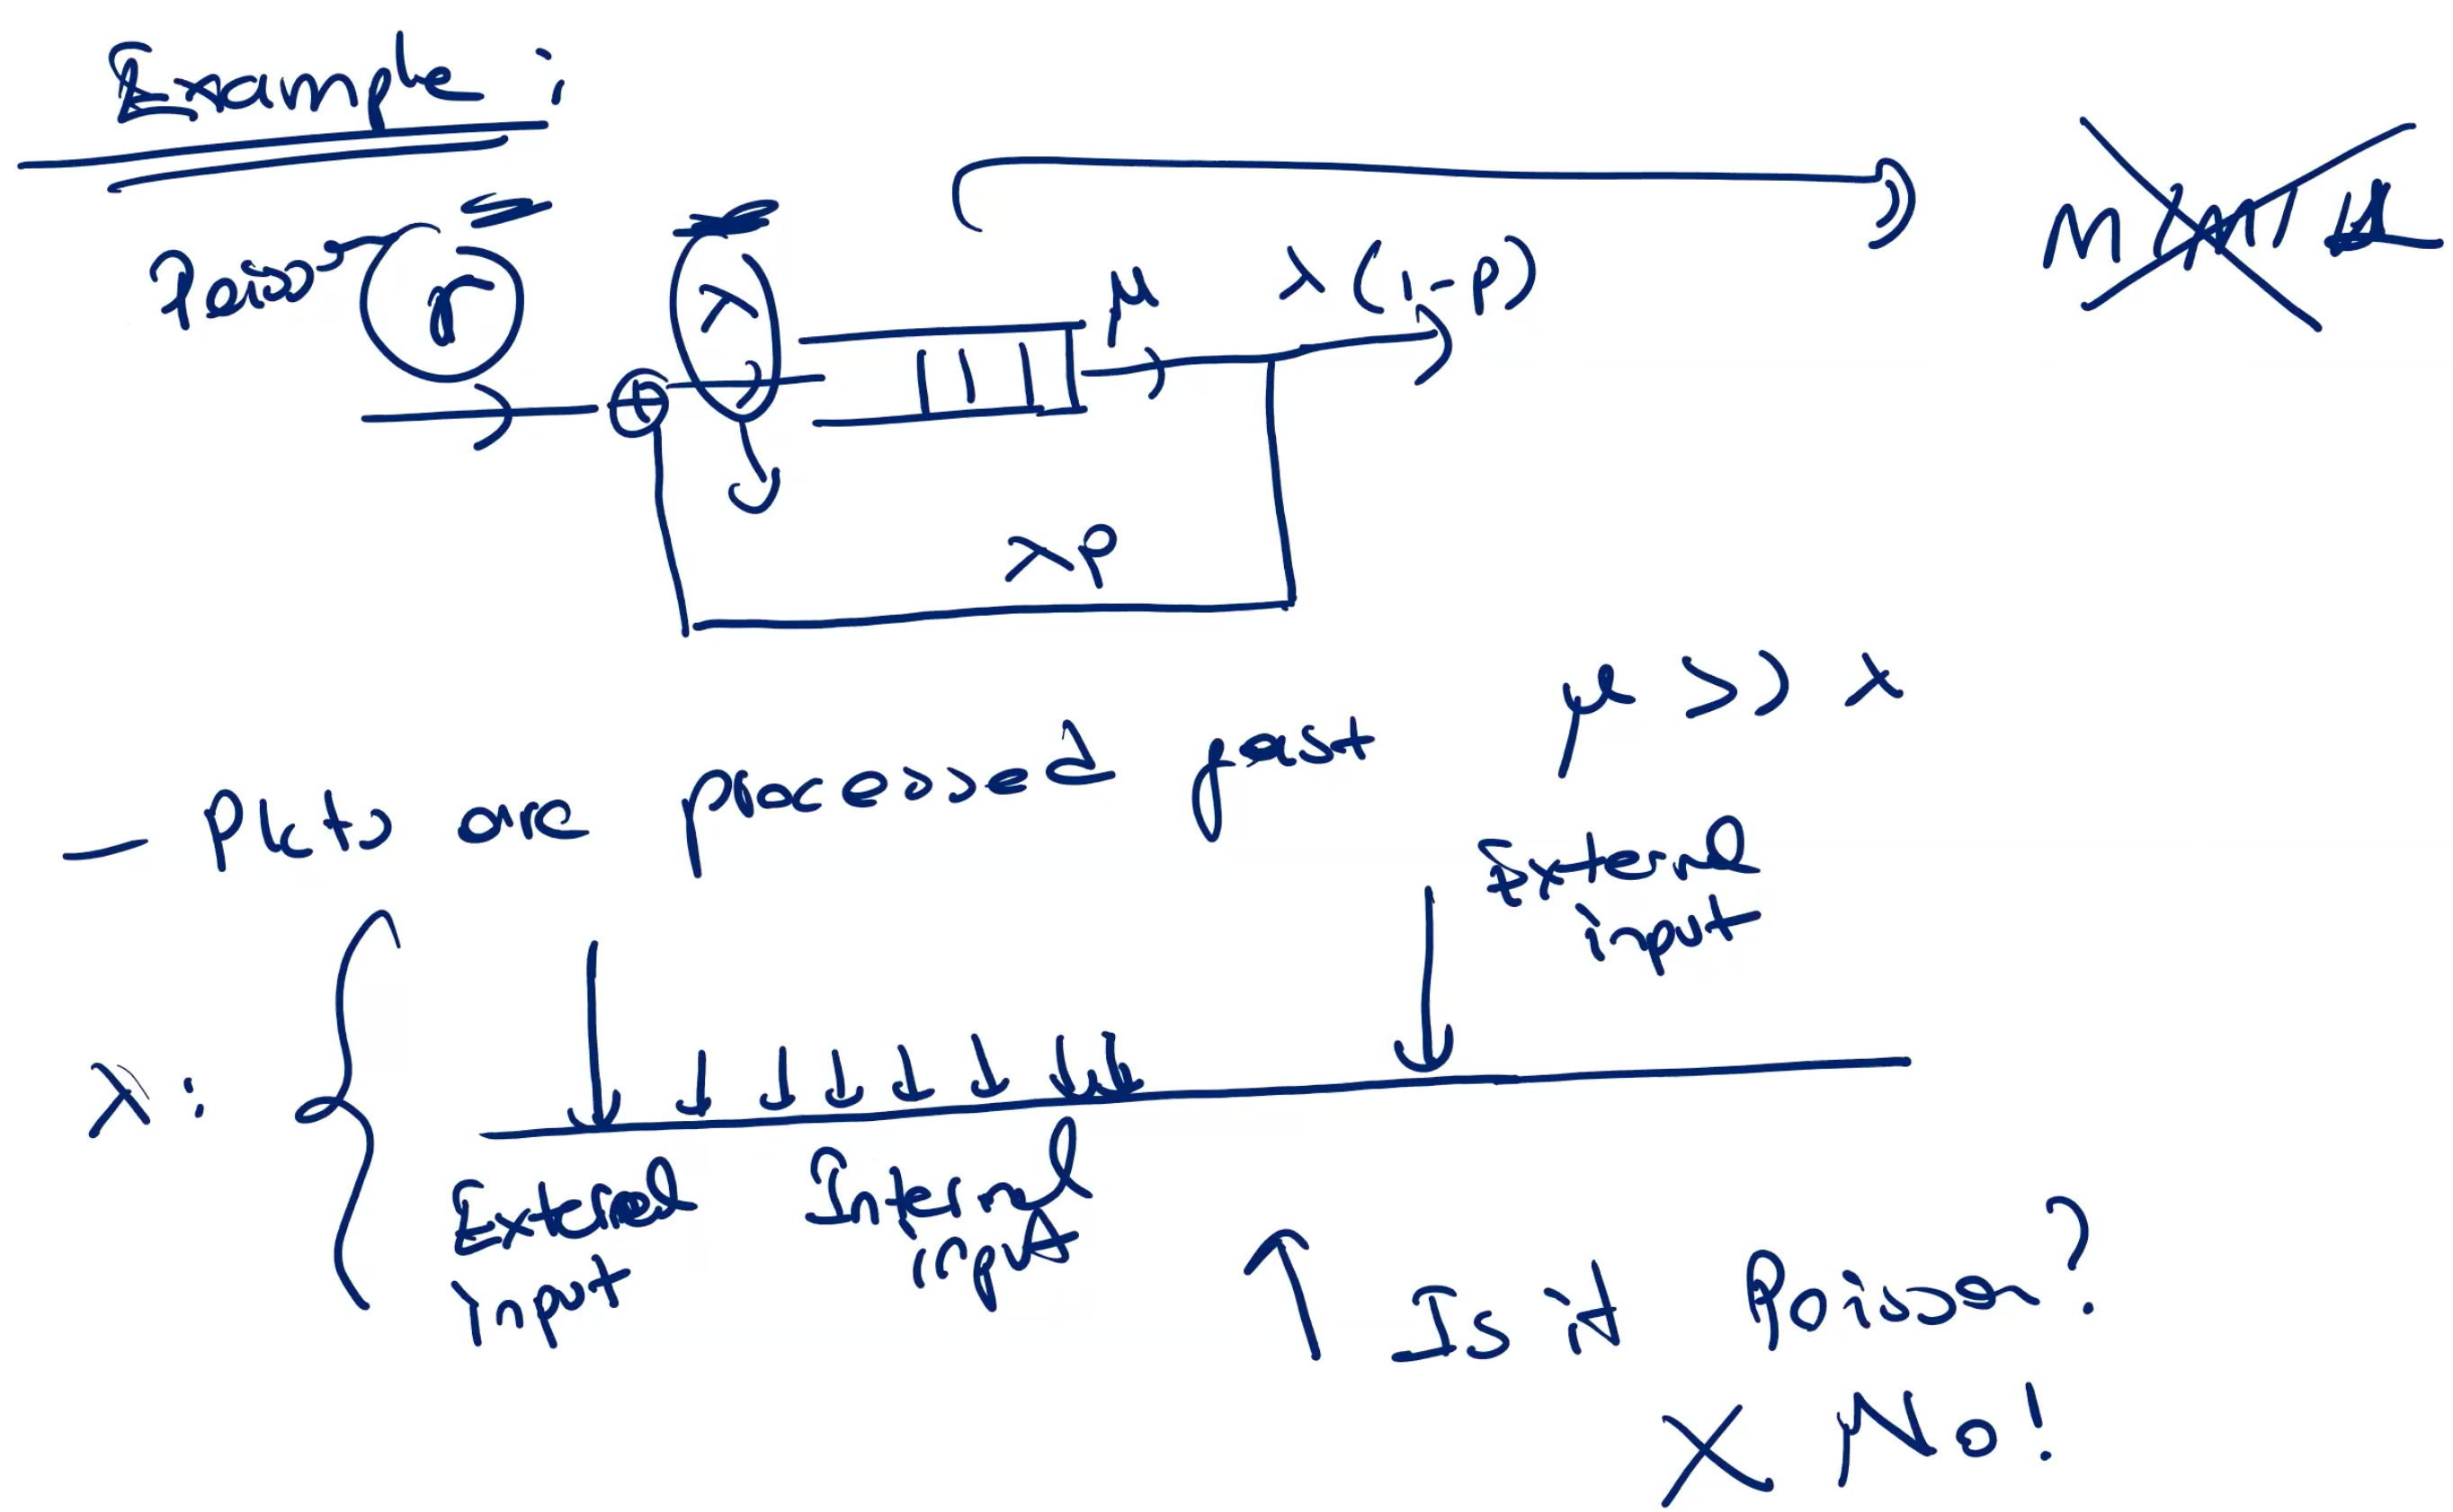 Example :
Poisson r
λ
μ λ(1-p)
M/M/1
λp
μ >> λ
- Pkts are processed fast
External
input
λ :
External
Input
Internal
input
Is it Poisson?
X No!